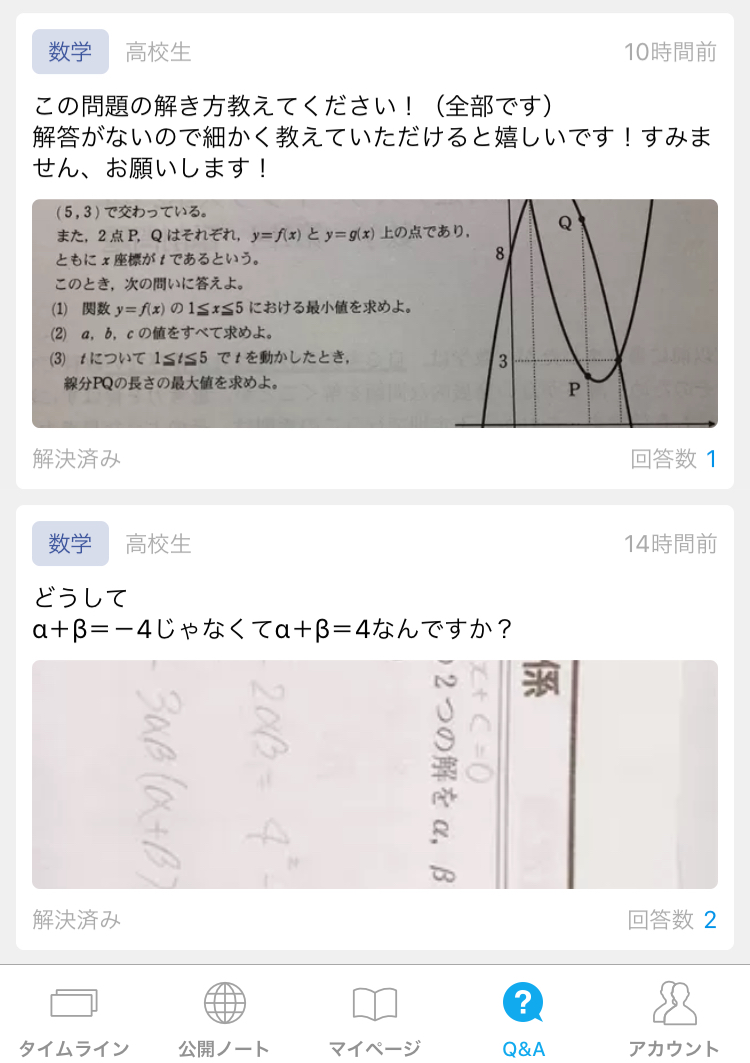 数学 高校生 10時間前
この問題の解き方教えてください！（全部です）
解答がないので細かく教えていただけると嬉しいです！すみま
せん、お願いします！
(5, 3) で交わっている。
また，2点 P，Q はそれぞれ，y=f(x) と y=g(x) 上の点であり，
ともに x 座標が t であるという。
このとき，次の問いに答えよ。
(1) 関数 y=f(x) の 1≦x≦5 における最小値を求めよ。
(2) a，b，c の値をすべて求めよ。
(3) t について 1≦t≦5 で t を動かしたとき，
線分PQの長さの最大値を求めよ。
Q
8
3
P
解決済み 回答数 1
数学 高校生 14時間前
どうして
α＋β＝－4じゃなくてα＋β＝4なんですか？
係
x + c = 0
2つの解を α, β
2αβ = 4² -
- 3αβ(α+β)
解決済み 回答数 2
タイムライン 公開ノート マイページ Q&A アカウント